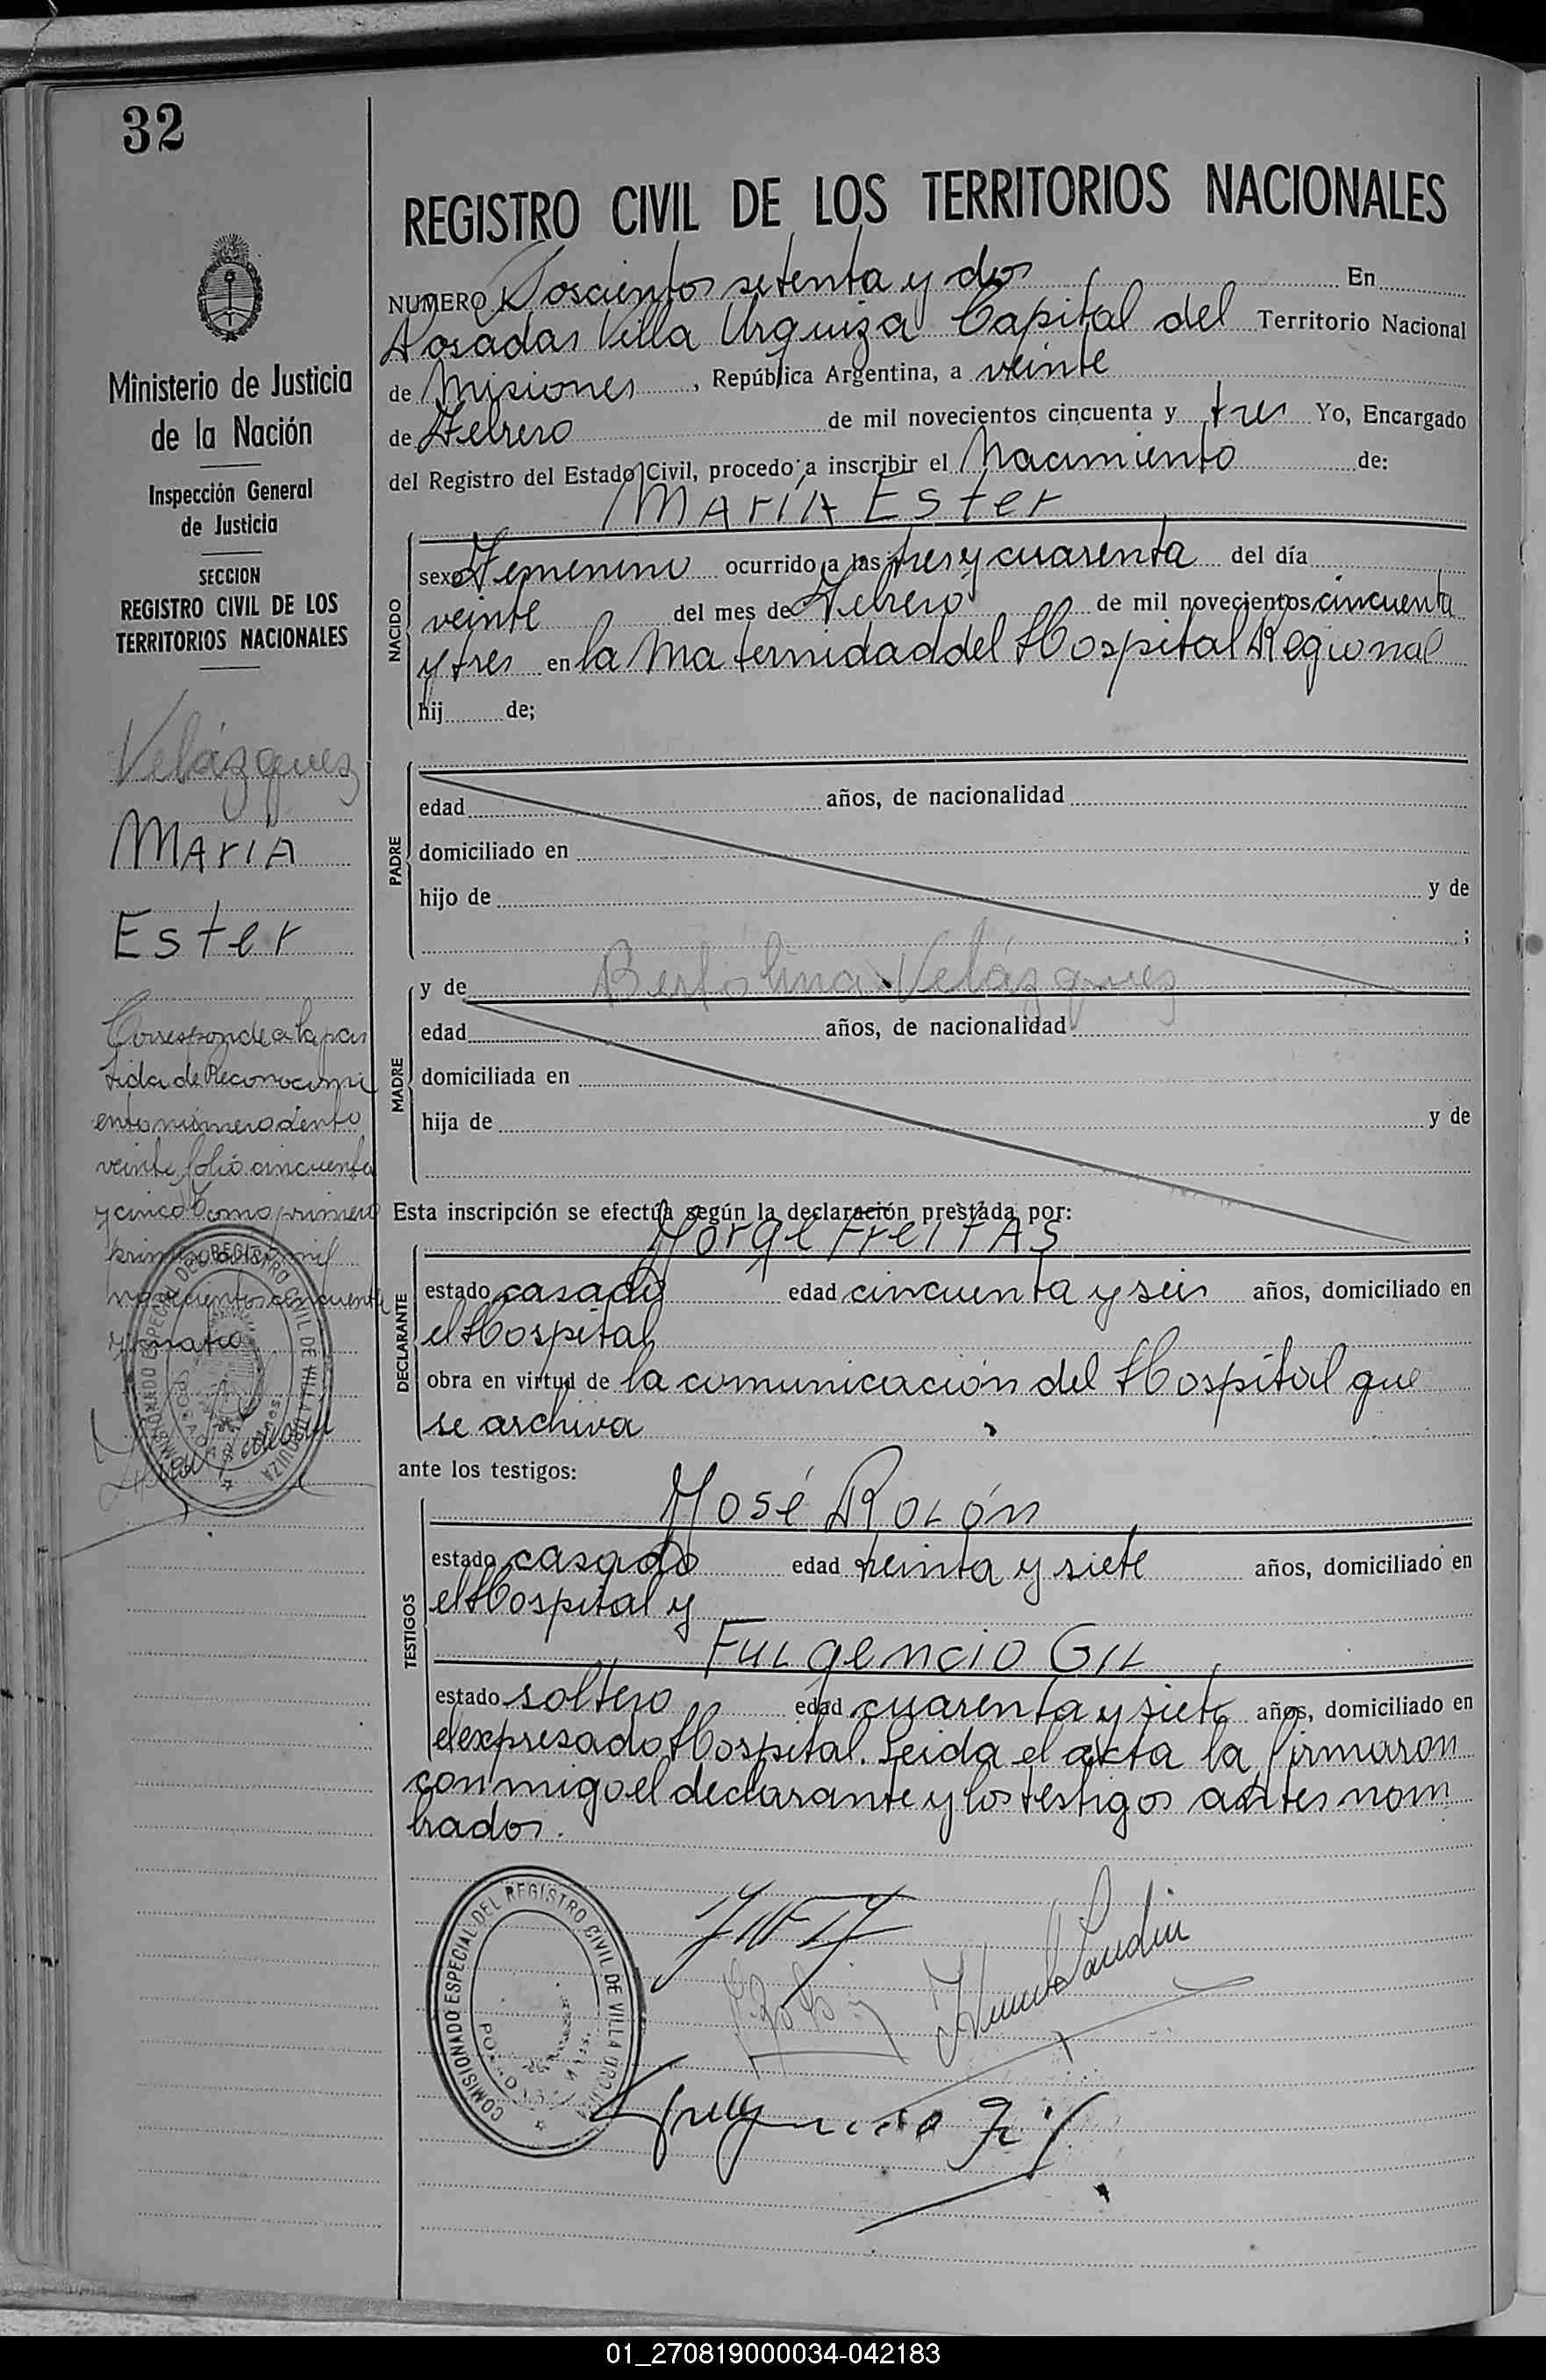 32
Ministerio de Justicia
de la Nación
Inspección General
de Justicia
SECCION
REGISTRO CIVIL DE LOS
TERRITORIOS NACIONALES
Velázquez
MARÍA
Ester
Corresponde a la par
tida de Reconocimi
ento número ciento
veinte folio cincuenta
y cinco Tomo primero
mil
novecientos cincuenta
y cuatro
REGISTRO CIVIL DE LOS TERRITORIOS NACIONALES
NUMERO Doscientos setenta y dos En
Posadas Villa Urquiza Capital del Territorio Nacional
de Misiones, República Argentina, a veinte
de Febrero de mil novecientos cincuenta y tres Yo, Encargado
del Registro del Estado Civil, procedo a inscribir el Nacimiento de:
MARÍA Ester
NACIDO
sexo Femenino ocurrido a las tres y cuarenta del día
veinte del mes de Febrero de mil novecientos cincuenta
y tres en la Maternidad del Hospital Regional
hij de;
PADRE
edad años, de nacionalidad
domiciliado en
hijo de y de
;
MADRE
y de Velázquez
edad años, de nacionalidad
domiciliada en
hija de y de
Esta inscripción se efectúa según la declaración prestada por:
Jorge FreiTAS
DECLARANTE
estado casado edad cincuenta y seis años, domiciliado en
el Hospital
obra en virtud de la comunicación del Hospital que
se archiva
ante los testigos:
José ROLÓN
TESTIGOS
estado casado edad treinta y siete años, domiciliado en
el Hospital y
FULgencio GIL
estado soltero edad cuarenta y siete años, domiciliado en
el expresado Hospital. Leida el acta la firmaron
conmigo el declarante y los testigos antes nom
brados.
COMISIONADO ESPECIAL DEL REGISTRO CIVIL DE VILLA URQUIZA
Fulgencio Gil
01_270819000034-042183